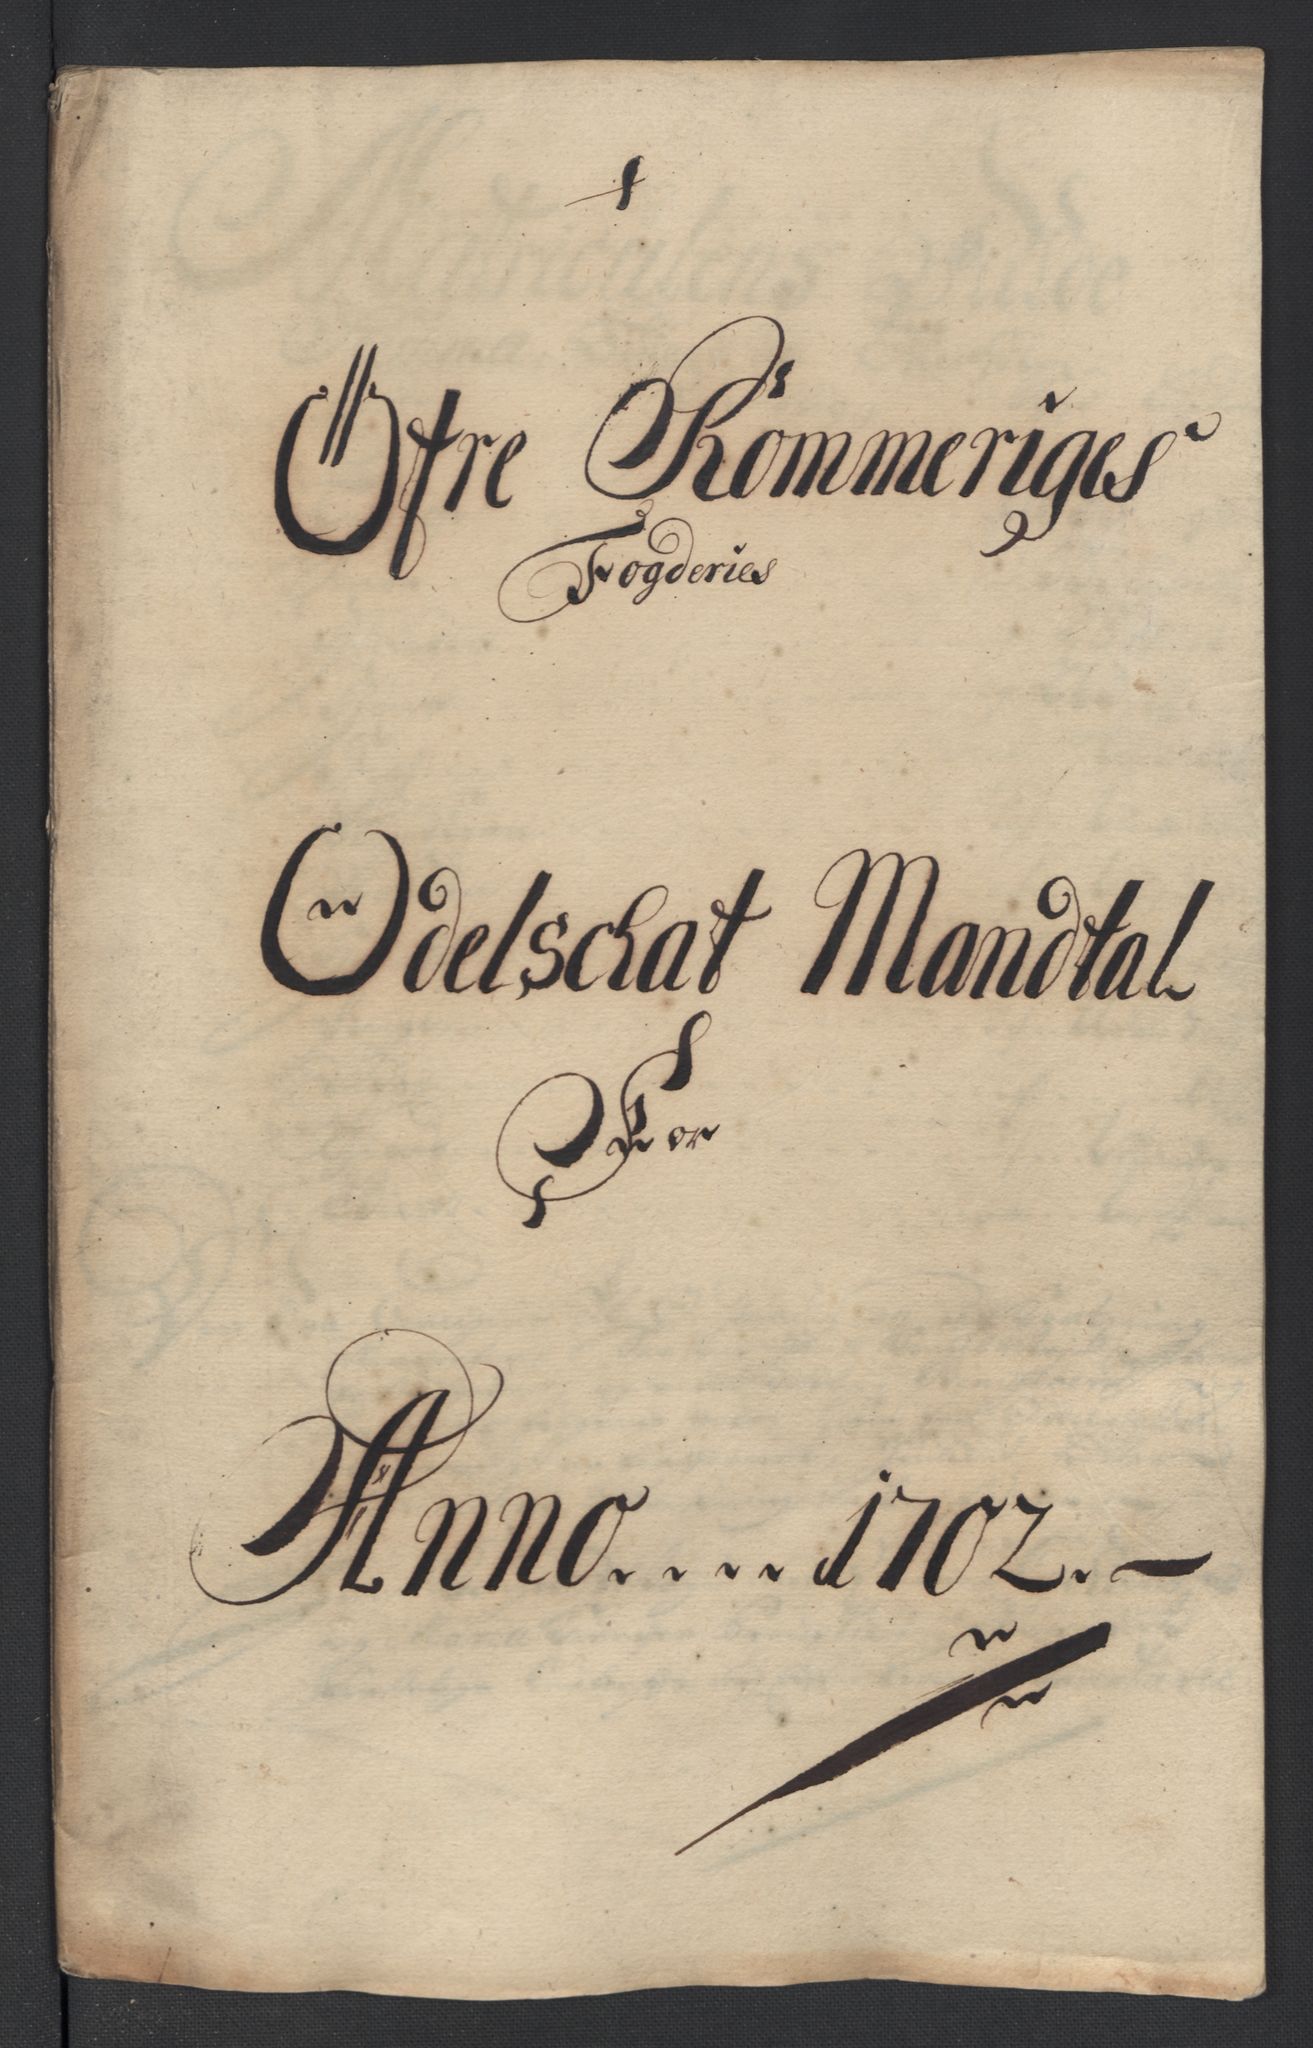 Öfre Rommeriges
Fogderies
Odelschat Mandtal
For
Anno.....1702.-